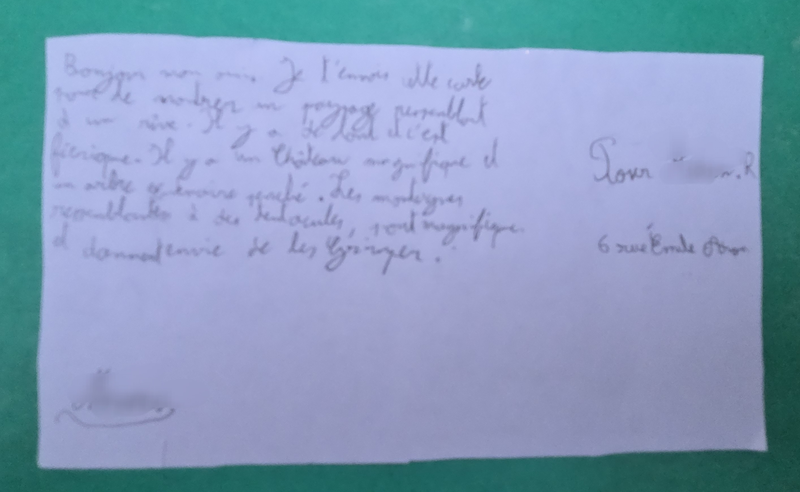 Bonjour mon ami. Je t'envois cette carte
pour te montrer un paysage ressemblant
à un rêve. Il y a de tout et c'est
féerique. Il y a un Château magnifique et
un arbre perché. Les montagnes
ressemblantes à des tentacules, sont magnifique
et donnent envie de les Grimper.
Pour
6 rue Émile